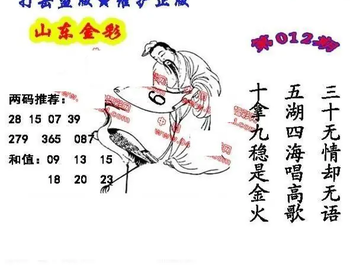 打击盗版维护正版
山东金彩
第012期
两码推荐:
28 15 07 39
279 365 087
和值: 09 13 15
18 20 23
6
三十无情却无语
五湖四海唱高歌
十拿九稳是金火